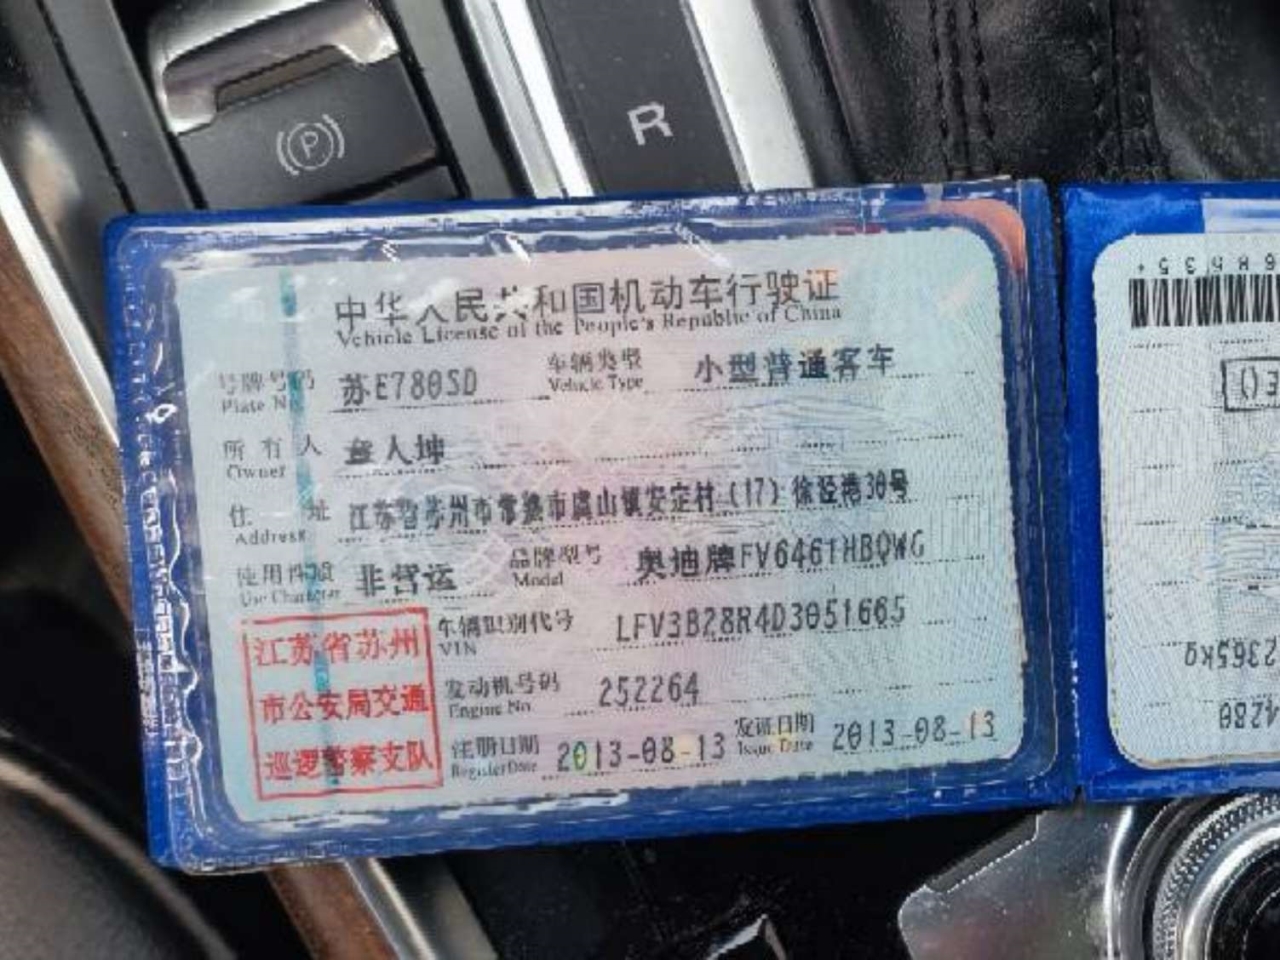 R
P
中华人民共和国机动车行驶证
Vehicle License of the People's Republic of China
号牌号码 苏E780SD 车辆类型 小型普通客车
Plate No. Vehicle Type
所有人 人坤
Owner
住址 江苏省苏州市常熟市虞山镇安定村(17)徐泾港30号
Address
使用性质 非营运 品牌型号 奥迪牌FV6461HBQWG
Use Character Model
车辆识别代号 LFV3B28R4D3051665
VIN
发动机号码 252264
Engine No.
注册日期 2013-08-13 发证日期 2013-08-13
Register Date Issue Date
江苏省苏州
市公安局交通
巡逻警察支队
2365kg
4280